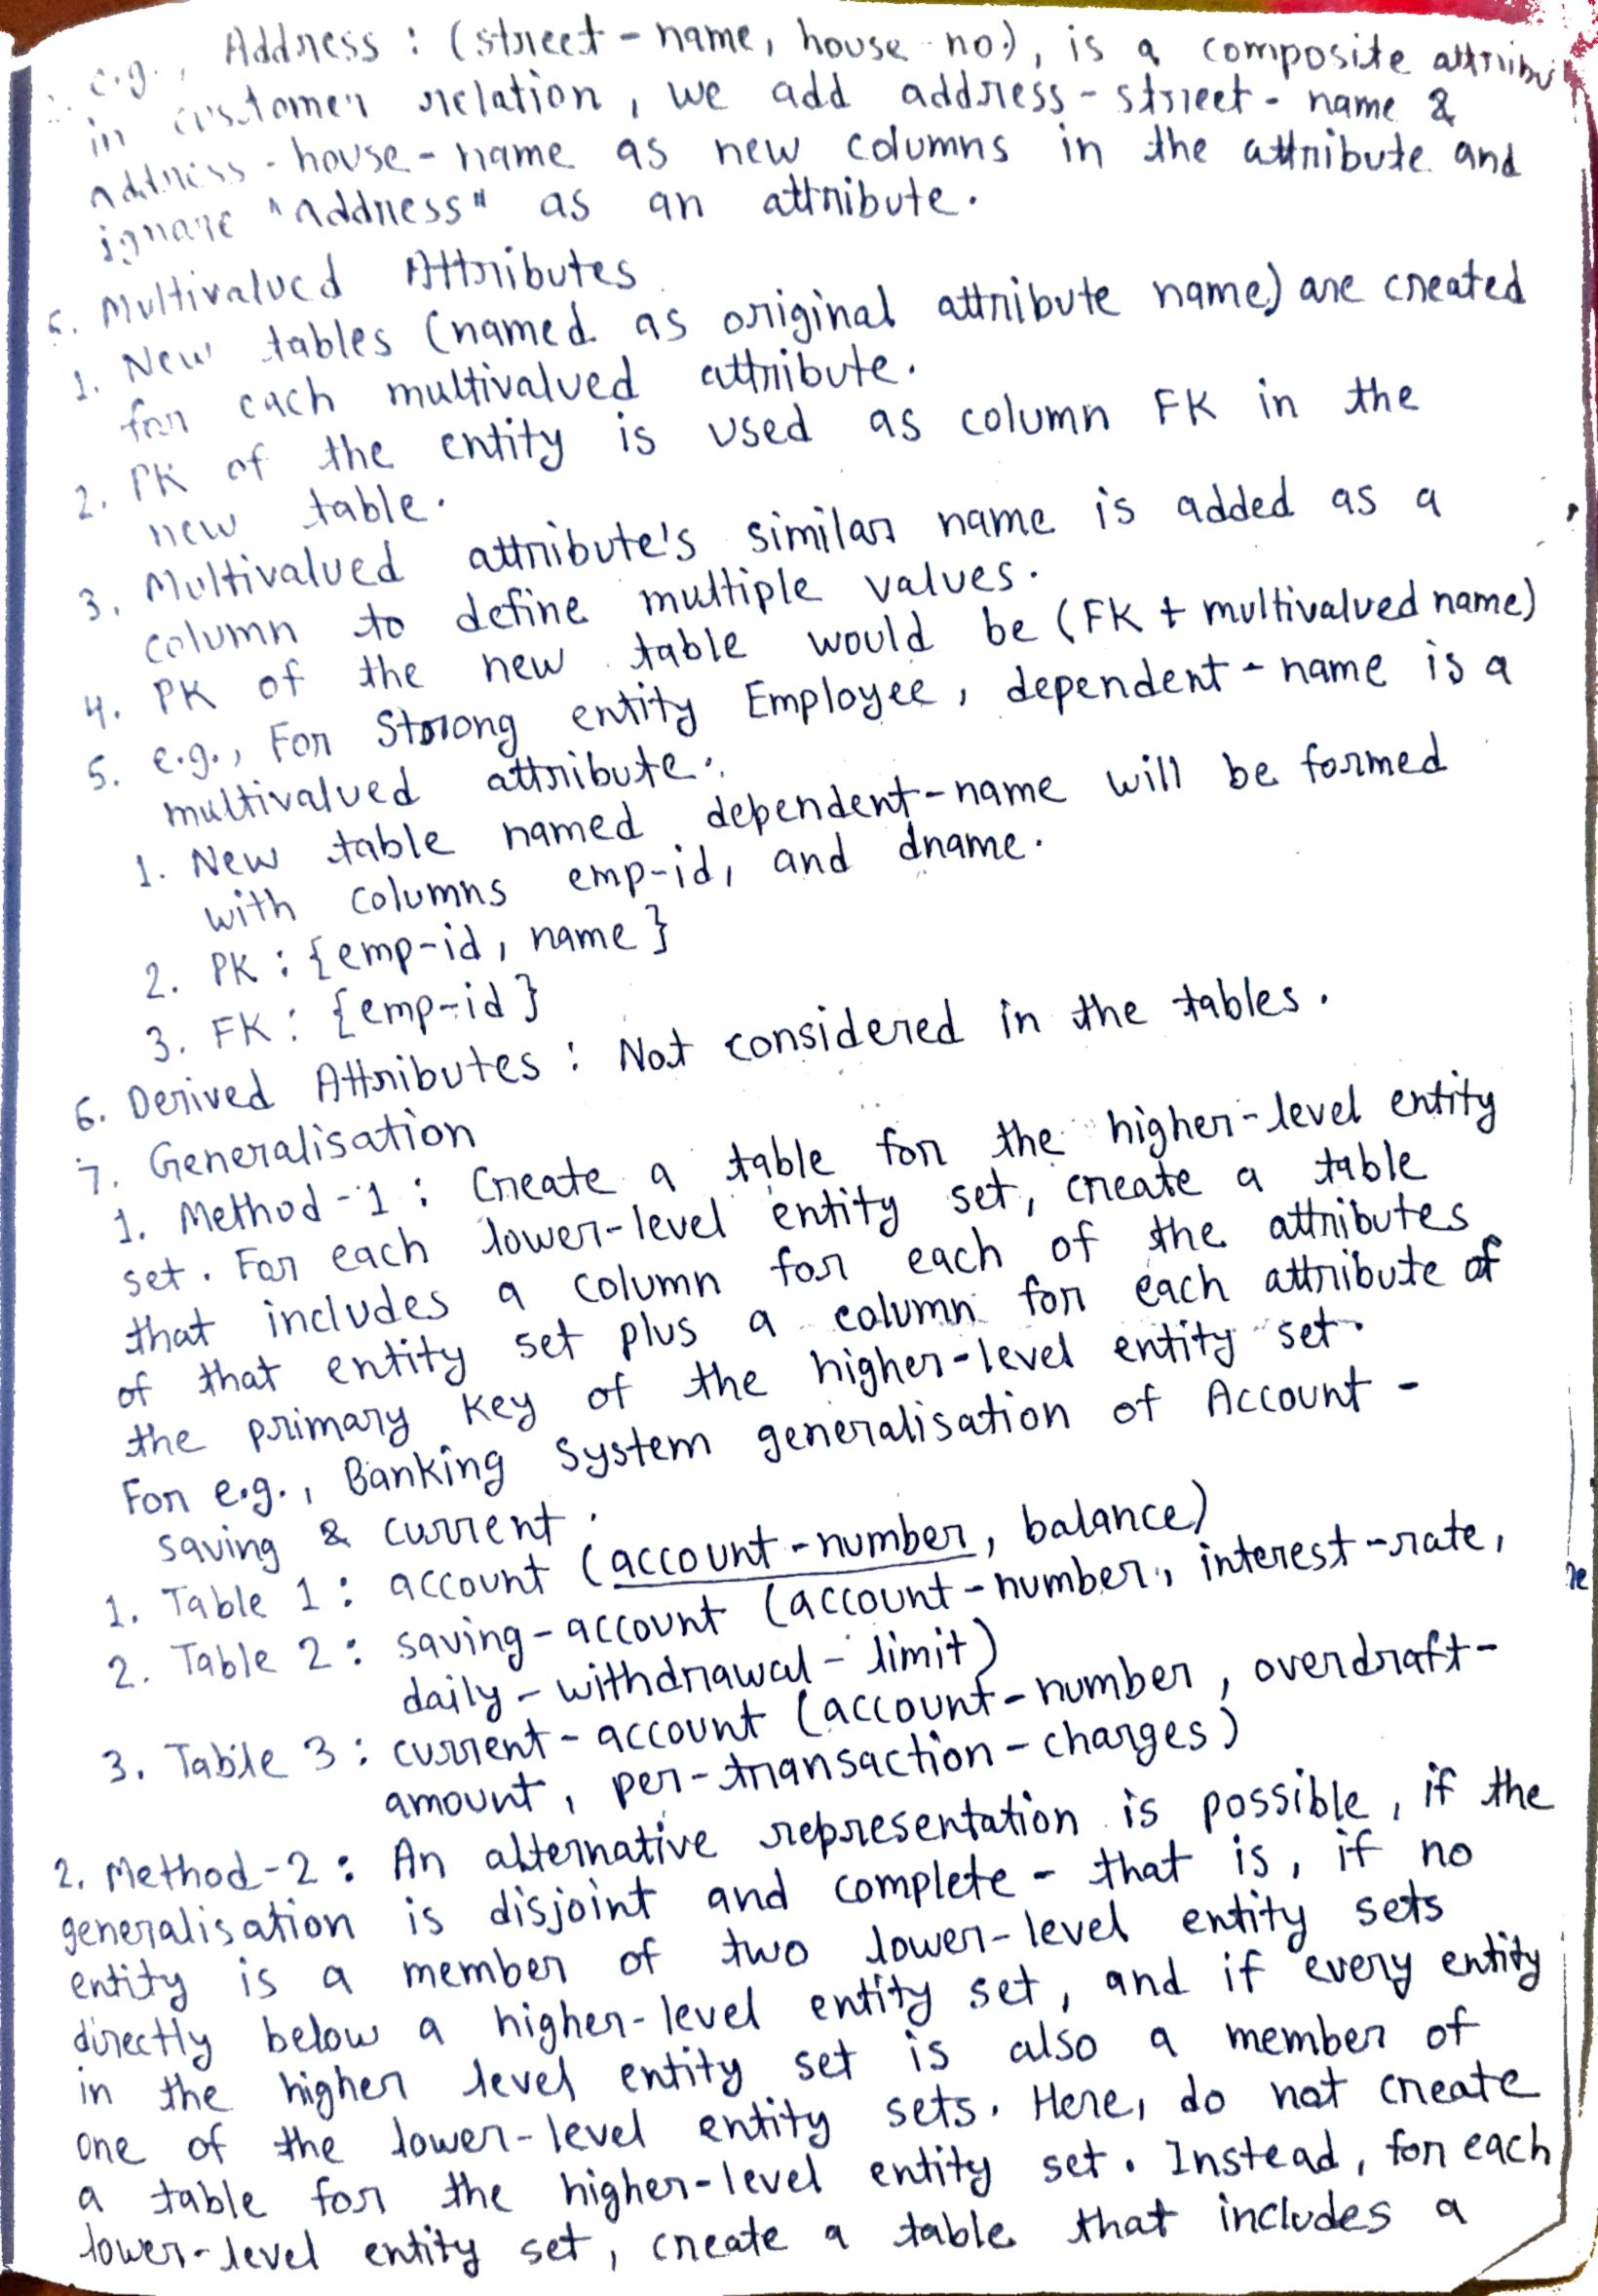 e.g., Address : (street - name, house no.), is a composite attribu
in customer relation, we add address - street - name &
address - house - name as new columns in the attribute and
ignore "address" as an attribute.
5. Multivalued Attributes
1. New tables (named as original attribute name) are created
for each multivalued attribute.
2. PK of the entity is used as column FK in the
new table.
3. Multivalued attribute's similar name is added as a
column to define multiple values.
4. PK of the new table would be (FK + multivalued name)
5. e.g., For Strong entity Employee, dependent - name is a
multivalued attribute.
1. New table named dependent-name will be formed
with columns emp-id, and dname.
2. PK : {emp-id, name}
3. FK : {emp-id}
6. Derived Attributes : Not considered in the tables.
7. Generalisation
1. Method - 1 : Create a table for the higher-level entity
set. For each lower-level entity set, create a table
that includes a column for each of the attributes
of that entity set plus a column for each attribute of
the primary key of the higher-level entity set.
For e.g., Banking System generalisation of Account -
saving & current.
1. Table 1 : account (account-number, balance)
2. Table 2 : saving-account (account-number, interest-rate,
daily-withdrawal-limit)
3. Table 3 : current-account (account-number, overdraft-
amount, per-transaction-charges)
2. Method-2 : An alternative representation is possible, if the
generalisation is disjoint and complete - that is, if no
entity is a member of two lower-level entity sets
directly below a higher-level entity set, and if every entity
in the higher level entity set is also a member of
one of the lower-level entity sets. Here, do not create
a table for the higher-level entity set. Instead, for each
lower-level entity set, create a table that includes a